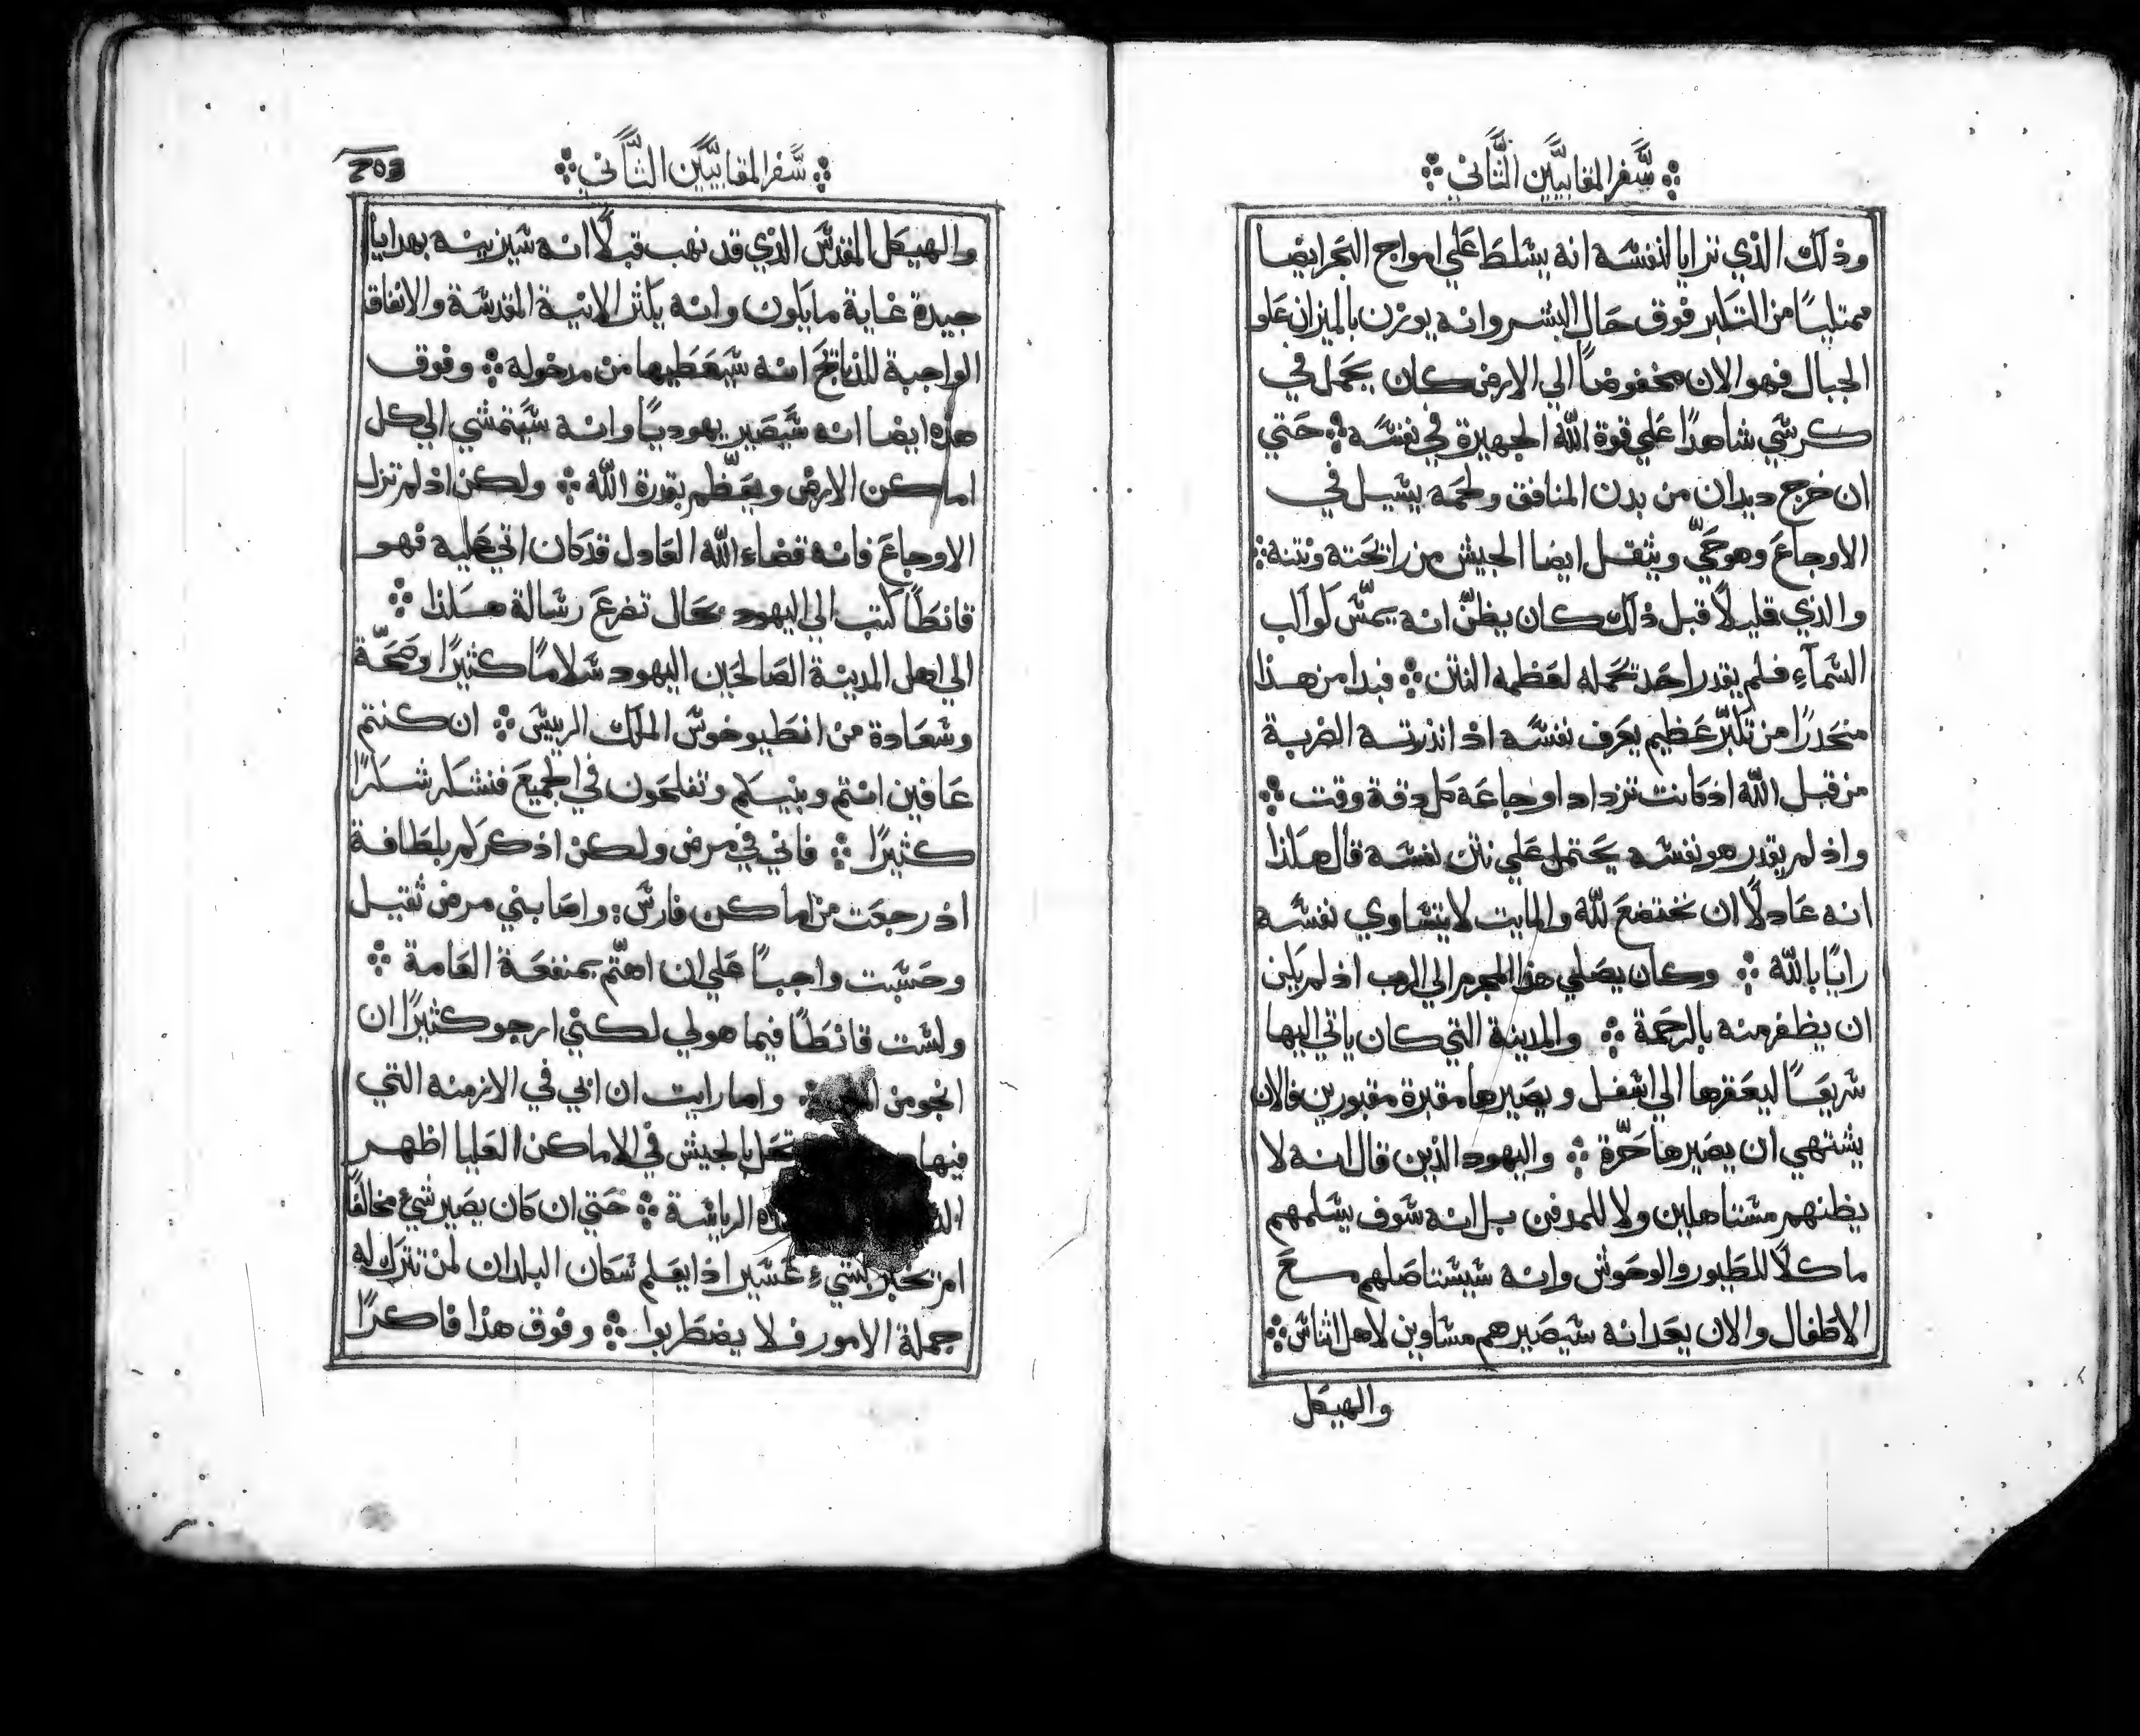 سفر المقابيين الثاني
وذلك الذي ترايا لنفسه انه يسلط علي امواج البحر ايضا
ممتليًا من التكبر فوق حال البشر وانه يوزن بالميزان علو
الجبال فهو الان مخفوضًا الي الارض كان يحمل في
كرسي شاهدًا علي قوة الله الجهيرة في نفسه ۞ حتي
ان خرج ديدان من بدن المنافق ولحمه يسيل في
الاوجاع وهو حيّ ويثقل ايضا الجيش من رايحته ونتنه ۞
والذي قليلًا قبل ذلك كان يظنّ انه يمسّ كواكب
السمآء فلم يقدر احد تحمله لعظمه النتن ۞ فبدا من هذا
منحدرًا من تكبّر عظيم يعرف نفسه اذ انذرته الضربة
من قبل الله اذ كانت تزداد اوجاعه كل دقة وقت ۞
واذ لم يقدر هو نفسه يحتمل علي نتن نفسه قال هكذا
انه عادلًا ان نختضع لله والمايت لا يتساوي نفسه
رايًا بالله ۞ وكان يصلي هذا المجرم الي الرب اذ لم يكن
ان يظفر منه بالرحمة ۞ والمدينة التي كان ياتي اليها
سريعًا ليعقرها الي اسفل ويصيرها مقبرة مقبورين فالان
يشتهي ان يصيرها حرّة ۞ واليهود الذين قال انه لا
يظنهم مستاهلين ولا للمدفن بل انه سوف يسلمهم
ماكلًا للطيور والوحوش وانه سيستاصلهم مع
الاطفال والان يعد انه سيصيرهم مساوين لاهل اثناس ۞
والهيكل
سفر المقابيين الثاني
203
والهيكل المقدس الذي قد نهب قبلًا انه سيزينه بهدايا
جيدة غاية ما يكون وانه يكثر الانية المقدسة والانفاق
الواجبة للذبايح انه سيعطيها من مدخوله ۞ وفوق
هذه ايضا انه سيصير يهوديًا وانه سيتمشي الي كل
اماكن الارض ويعظّم بقدرة الله ۞ ولكن اذ لم تزل
الاوجاع فانه قضاء الله العادل قد كان اتي عليه فهو
قانطًا كتب الي اليهود بحال تضرع رسالة هكذا ۞
الي اهل المدينة الصالحين اليهود سلامًا كثيرًا وصحّة
وسعادة من انطيوخوس الملك الرييس ۞ ان كنتم
عافين انتم وبنيكم وتفلحون في الجميع فنشكر شكرًا
كثيرًا ۞ فاني في مرض ولكن اذكركم بلطافة
اذ رجعت من اماكن فارس ۞ واصابني مرض ثقيل
وحسبت واجبًا علي ان اهتّم بمنفعة العامة ۞
ولست قانطًا فيما هو لي لكني ارجو كثيرًا ان
انجو من ۞ واما رايت ان ابي في الازمنه التي
فيها بالجيش في الاماكن العليا اظهر
الرياسة ۞ حتي ان كان يصير شيء مخالفًا
امر تخبر بشيء عسير اذا يعلم سكان البلدان لمن تترك له
جملة الامور فلا يضطربوا ۞ وفوق هذا فاكرًا